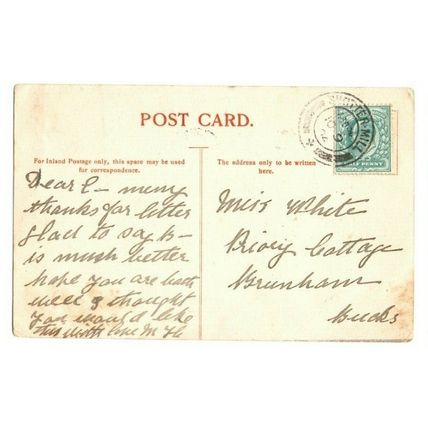 POST CARD.
For Inland Postage only, this space may be used
for correspondence.
The address only to be written
here.
SHOTTER MILL
HALF PENNY
Dear E – many
thanks for letter
glad to say K–
is much better
hope you are both
well & thought
you would like
this with love M
Miss White
Priory Cottage
Burnham
Bucks